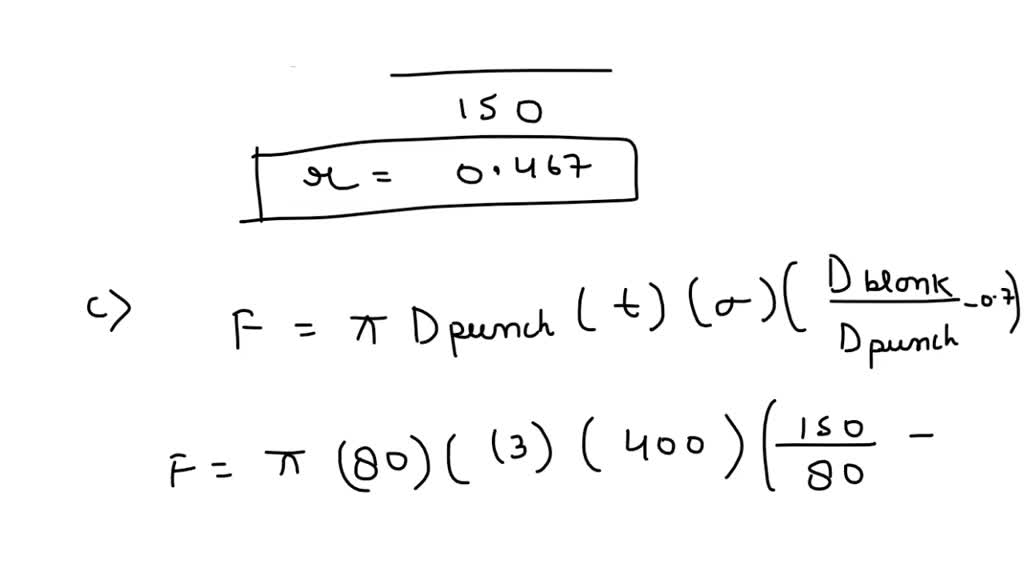 150
r = 0.467
c) F = π Dpunch (t) (σ) (Dblank/Dpunch -0.7)
F = π (80) ( (3) ( 400 ) ( 150/80 -